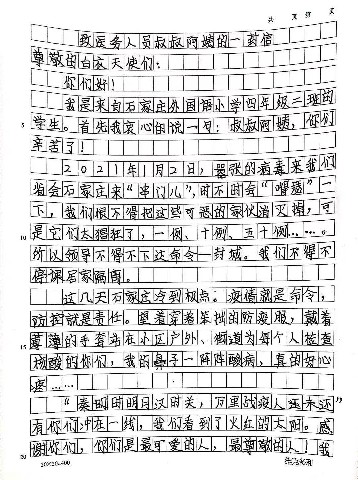 共 页 第 页
致医务人员叔叔阿姨的一封信
尊敬的白衣天使们：
你们好！
我是来自石家庄外国语小学四年级二班的
学生。首先我衷心的说一句：叔叔阿姨，你们
辛苦了！
2021年1月2日，嚣张的病毒来我们
省会石家庄来“串门儿”，时不时会“嘚瑟”一
下，我们恨不得把这些可恶的家伙消灭掉，可
是它们太猖狂了，一例、十例、五十例……。
所以领导不得不下达命令—封城。我们不得不
停课居家隔离。
这几天石家庄冷到极点。疫情就是命令，
防控就是责任。望着穿着笨拙的防疫服，戴着
薄薄的手套站在小区户外、街道为每个人检查
核酸的你们，我的鼻子一阵阵酸痛，真的好心
疼……
“秦时明月汉时关，万里战疫人还未还”
有你们冲在一线，我们看到了火红的太阳。感
谢你们，你们是最可爱的人，最尊敬的人！我
5
10
15
20
20×20=400